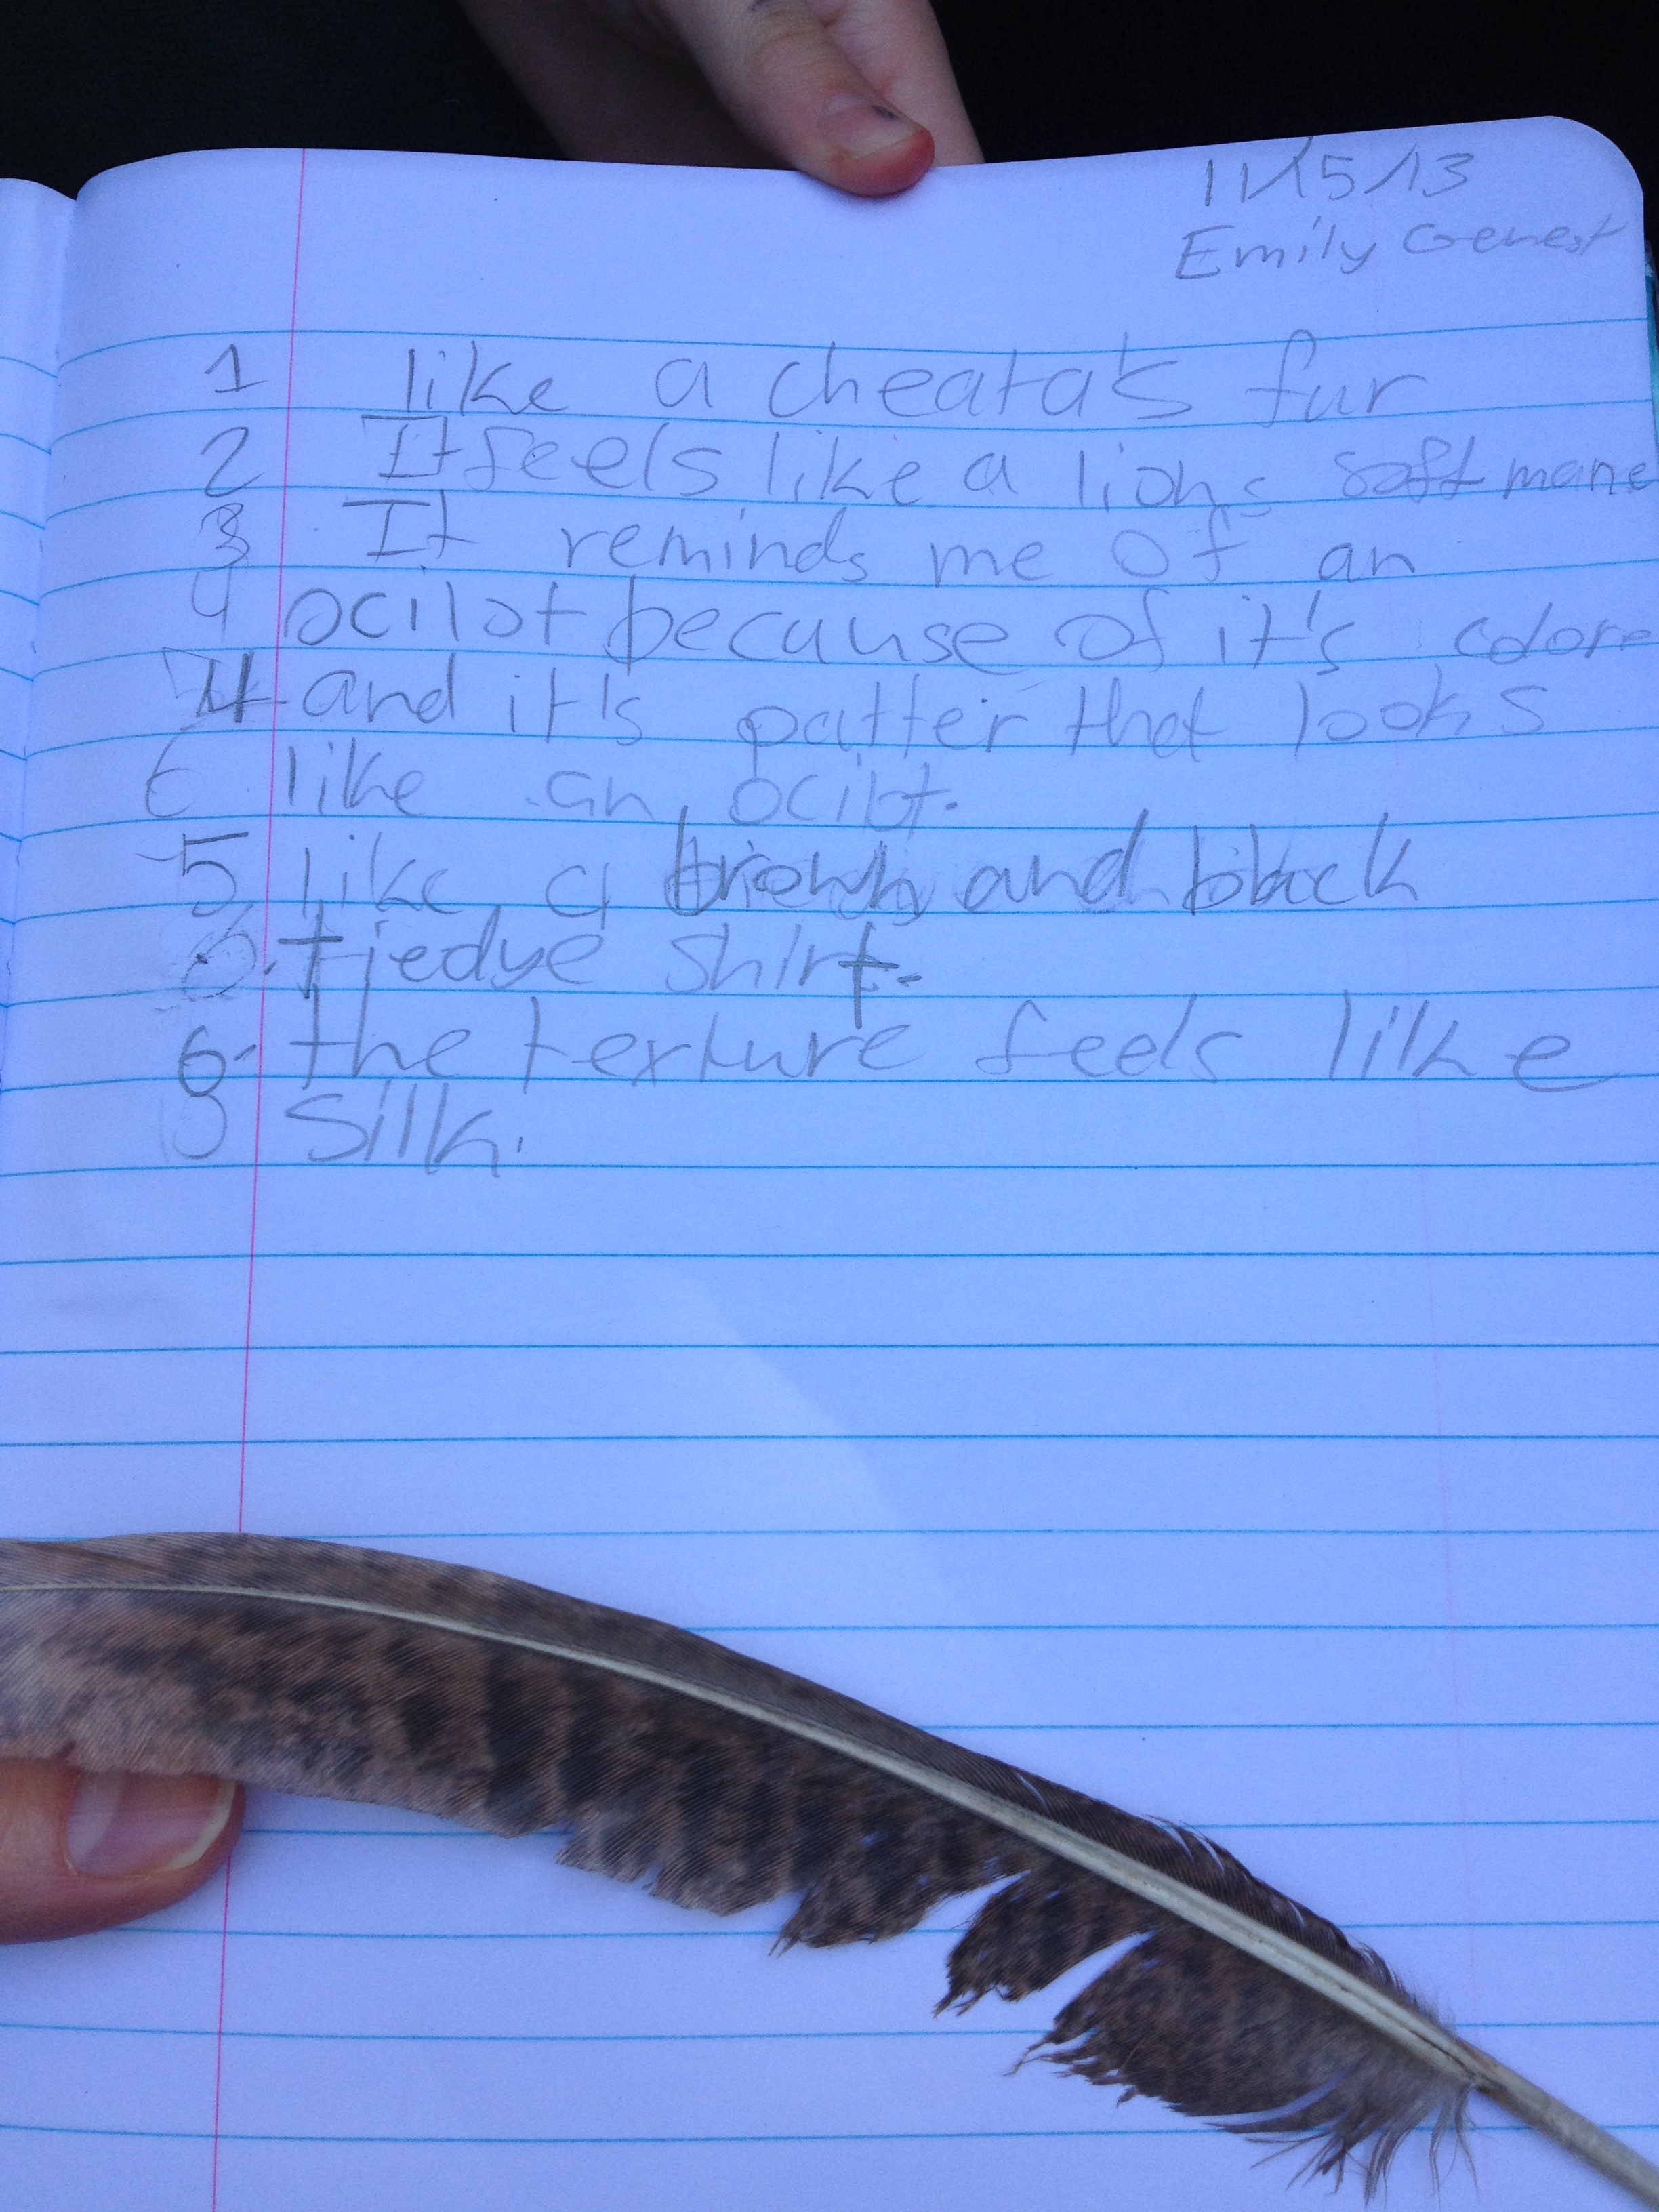 11/15/13
Emily Genest
1 like a cheata's fur
2 It feels like a lions soft mane
3 It reminds me of an
4 ocilot because of it's colore
4 and it's patter that looks
6 like an ocilot.
5 like a brown and black
6. tiedye shirt.
6. the texture feels like
silk.